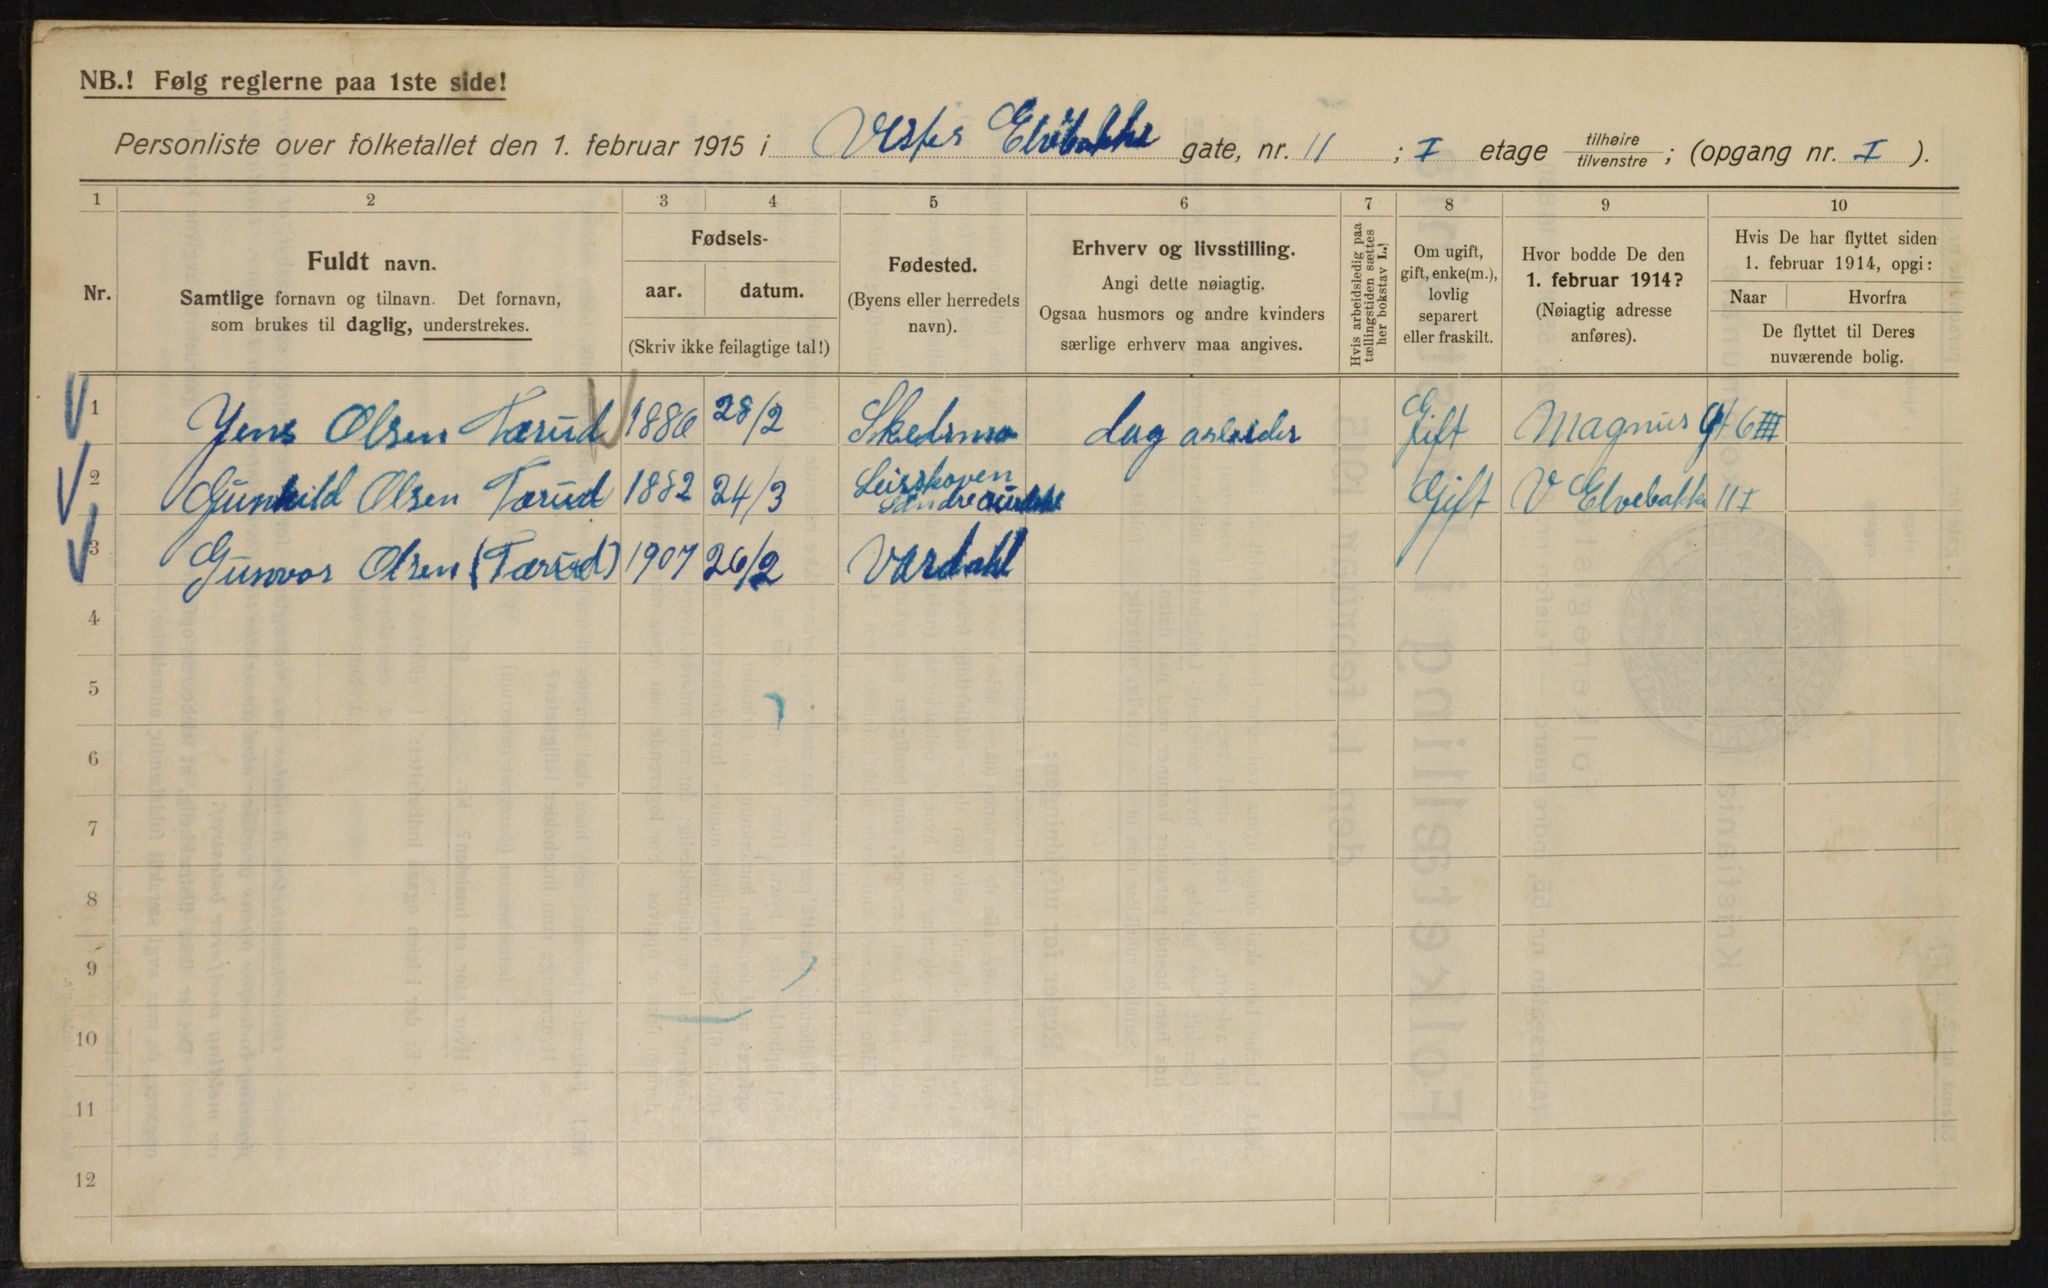 NB.! Følg reglerne paa 1ste side!
Personliste over folketallet den 1. februar 1915 i Vester Elvebakke gate, nr. 11 ; I etage tilhøire / tilvenstre ; (opgang nr. I ).
1 2 3 4 5 6 7 8 9 10
Nr.
Fuldt navn.
Samtlige fornavn og tilnavn. Det fornavn,
som brukes til daglig, understrekes.
Fødsels-
aar. datum.
(Skriv ikke feilagtige tal!)
Fødested.
(Byens eller herredets
navn).
Erhverv og livsstilling.
Angi dette nøiagtig.
Ogsaa husmors og andre kvinders
særlige erhverv maa angives.
Hvis arbeidsledig paa
tællingstiden sættes
her bokstav L.!
Om ugift,
gift, enke(m.),
lovlig
separert
eller fraskilt.
Hvor bodde De den
1. februar 1914?
(Nøiagtig adresse
anføres).
Hvis De har flyttet siden
1. februar 1914, opgi:
Naar Hvorfra
De flyttet til Deres
nuværende bolig.
1 Yens Olsen Tærud 1886 28/2 Skedsmo dag arbeider Gift Magnus gt 6 III
2 Gunhild Olsen Tærud 1882 24/3 Gift V Elvebakke 11 I
3 Gunvor Olsen (Tærud) 1907 26/2 Vardahl
4
5
6
7
8
9
10
11
12